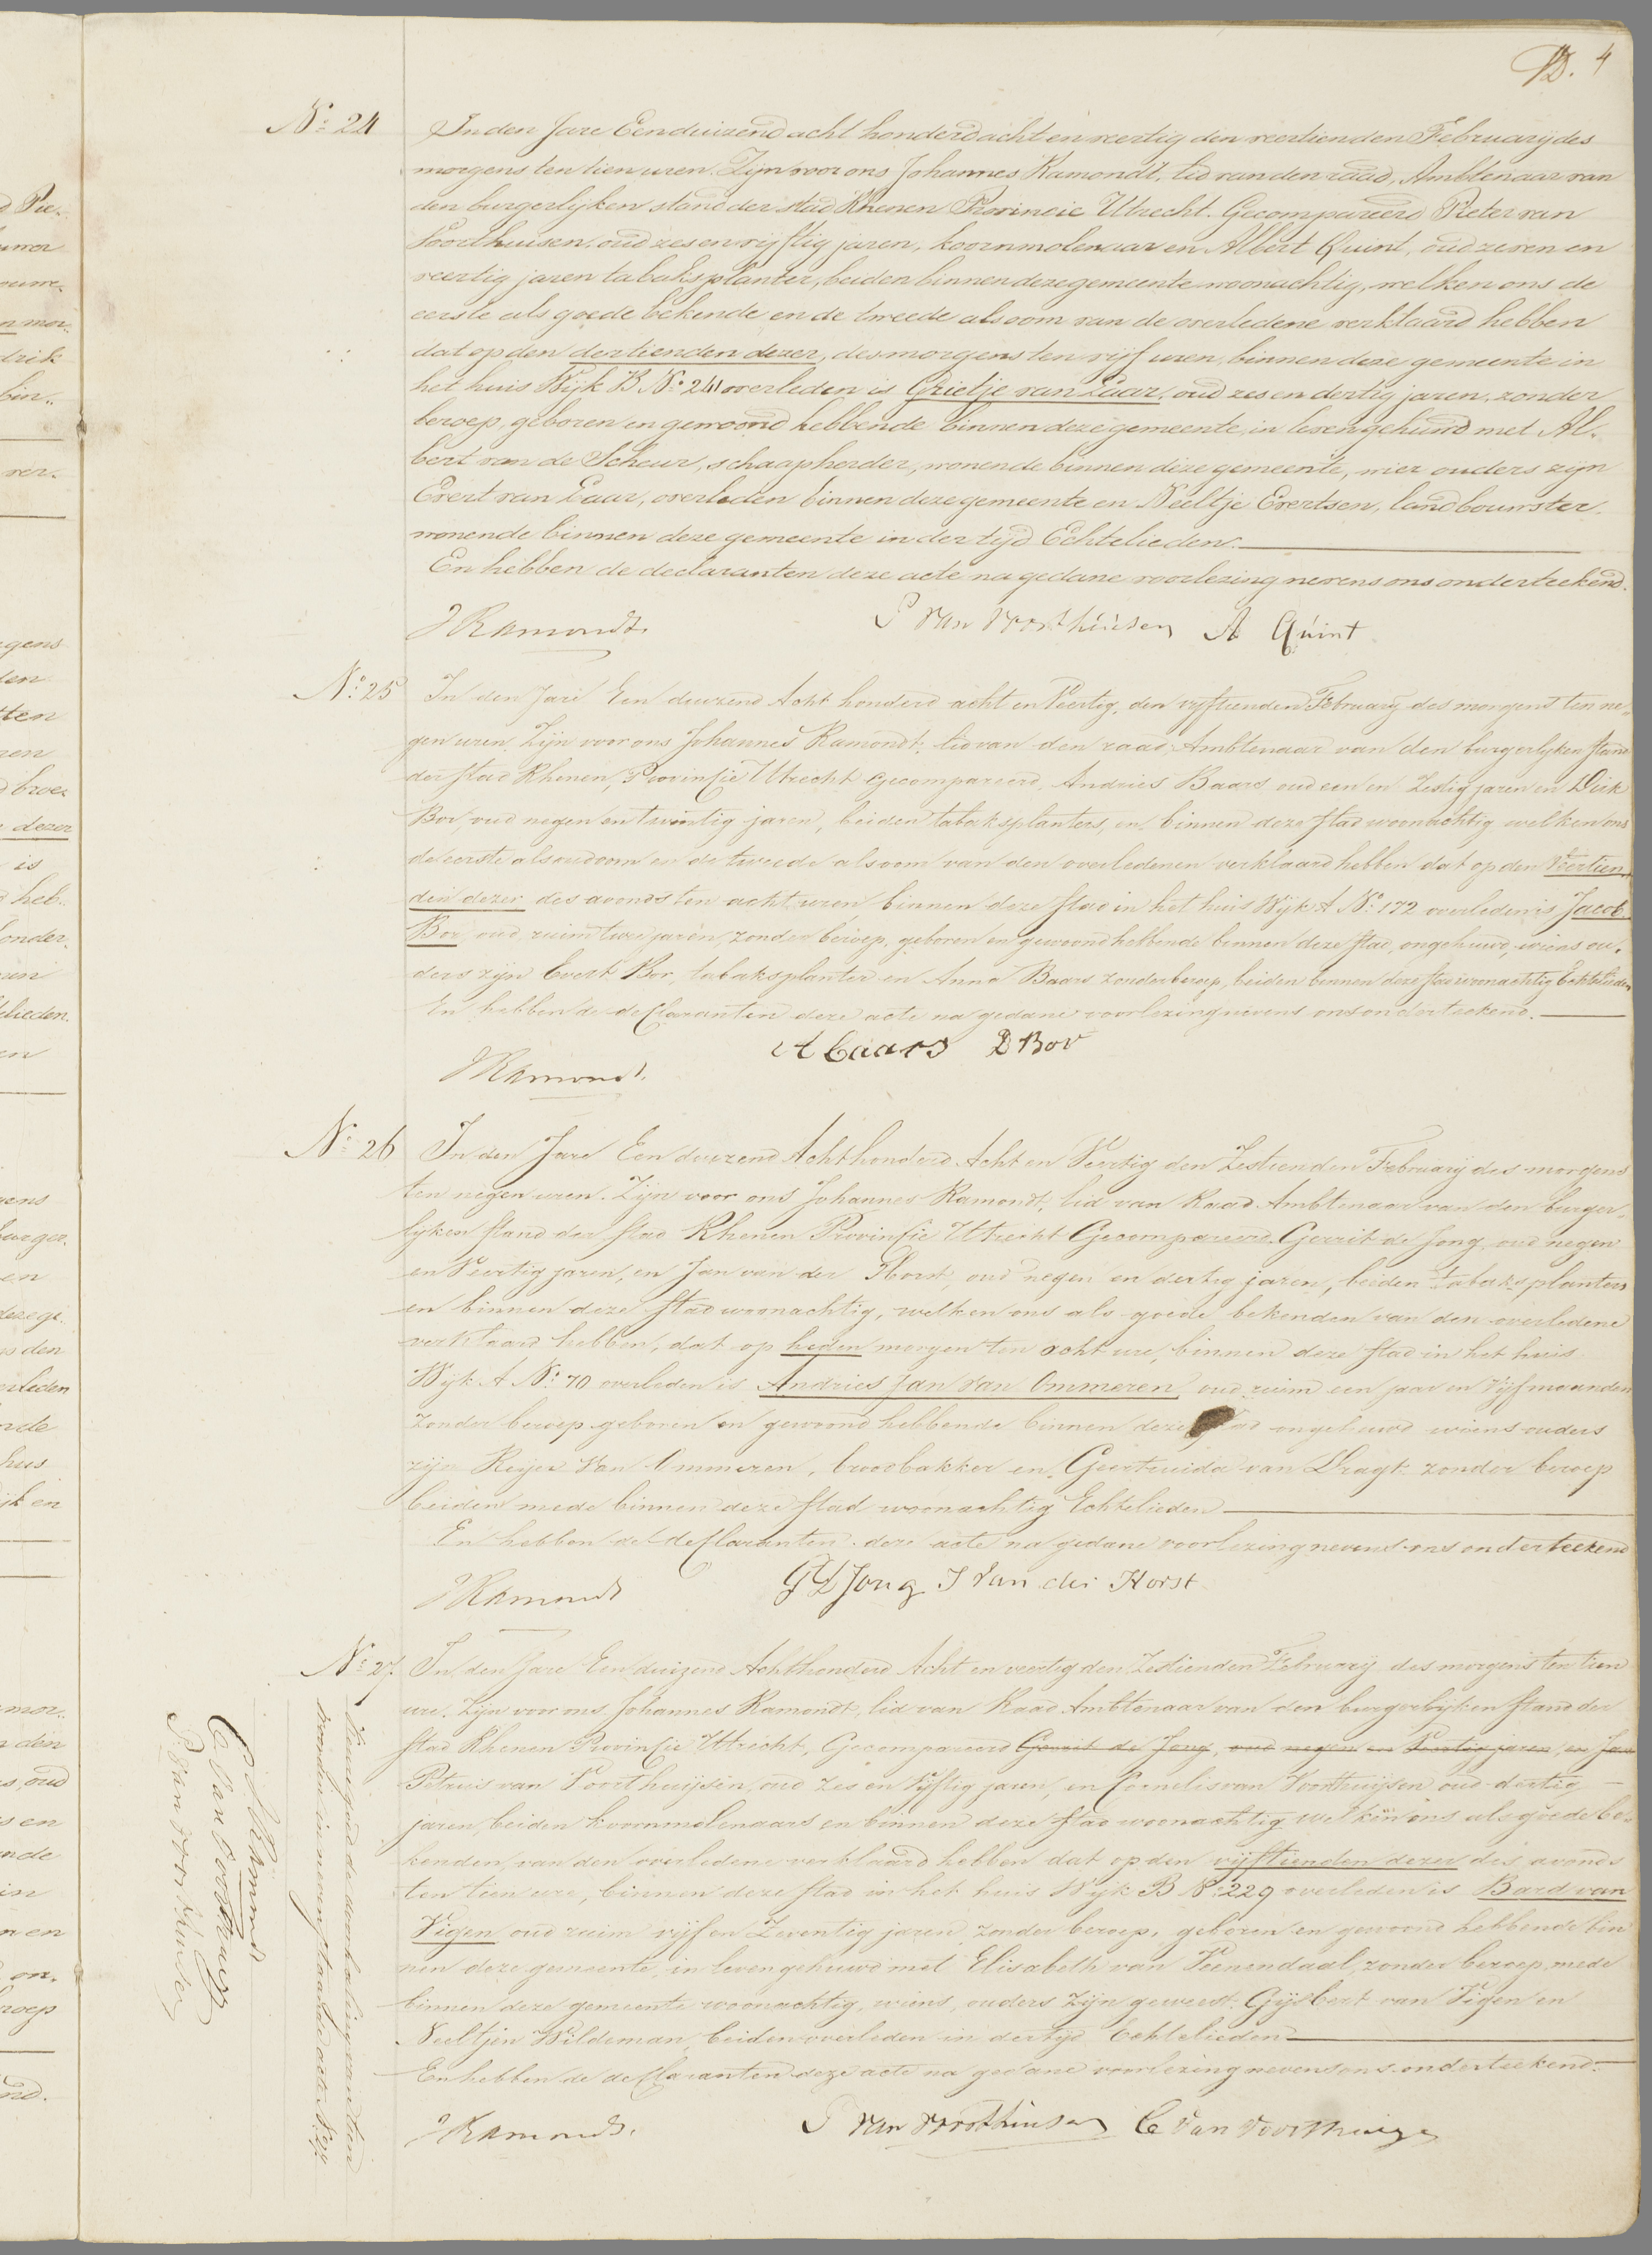 4
No 24
In den Jare Eenduizend acht honderd acht en veertig den veertienden February des
morgens ten tien uren. Zijn voor ons Johannes Ramondt, Lid van den raad, Ambtenaar van
den burgerlyken stand der stad Rhenen Provincie Utrecht. Gecompareerd Pieter van
Voorthuisen, oud zes en vyftig jaren, koornmolenaar en Albert Quint, oud zeven en
veertig jaren tabaksplanter, beiden binnen deze gemeente woonachtig, welken ons de
eerste als goede bekende en de tweede als oom van de overledene verklaard hebben
dat op den dertienden dezer, des morgens ten vyf uren, binnen deze gemeente in
het huis Wijk B No 241 overleden is Grietje van Laar, oud zes en dertig jaren, zonder
beroep, geboren en gewoond hebbende binnen deze gemeente, in leven gehuwd met Al-
bert van de Scheur, schaapherder, wonende binnen deze gemeente, wier ouders zijn
Evert van Laar, overleden binnen deze gemeente en Neeltje Evertsen, landbouwster
wonende binnen deze gemeente in der tijd Echtelieden.
En hebben de declaranten deze acte na gedane voorlezing nevens ons onderteekend.
J Ramondt. P van Voorthuisen A Quint
No 25
In den Jare Een duizend Acht honderd acht en Veertig, den vyftienden February des morgens ten ne-
gen uren. Zijn voor ons Johannes Ramondt, lid van den raad, Ambtenaar van den burgerlyken stand
der stad Rhenen, Provinsie Utrecht Gecompareerd, Andries Baars oud een en Zestig jaren en Dirk
Bor, oud negen en twintig jaren, beiden tabaksplanters, en binnen deze stad woonachtig welken ons
de eerste als oudoom en de tweede als oom van den overledenen verklaard hebben dat op den Veertien-
den dezer des avonds ten acht uren, binnen deze stad in het huis Wijk A No 172 overleden is Jacob
Bor, oud ruim twee jaren, zonder beroep, geboren en gewoond hebbende binnen deze stad, ongehuwd, wiens ou-
ders zijn Evert Bor, tabaksplanter en Anna Baars zonder beroep, beiden binnen deze stad woonachtig Echtelieden
En hebben de declaranten deze acte na gedane voorlezing nevens ons onderteekend.
A baars D Bor
J Ramondt.
No 26
In den Jare Een duizend Achthonderd Acht en Veertig den Zestienden February des morgens
ten negen uren. Zijn voor ons Johannes Ramondt, lid van Raad Ambtenaar van den burger-
lyken stand der stad Rhenen Provinsie Utrecht Gecompareerd. Gerrit de Jong oud negen
en Veertig jaren, en Jan van der Horst, oud negen en dertig jaren, beiden tabaksplanters
en binnen deze stad woonachtig, welken ons als goede bekenden van den overledene
verklaard hebben, dat op heden morgen ten acht ure, binnen deze stad in het huis
Wijk A No 70 overleden is Andries Jan van Ommeren, oud ruim een jaar en Vijf maanden
Zonder beroep geboren en gewoond hebbende binnen deze stad ongehuwd wiens ouders
zijn Reijer van Ommeren, broodbakker en Geertruida van Dragt zonder beroep
beiden mede binnen deze stad woonachtig Echtelieden
En hebben de declaranten deze acte na gedane voorlezing nevens ons onderteekend
J Ramondt G D Jong J van der Horst
No 27.
In den Jare Een duizend Achthonderd Acht en veertig den Zestienden February des morgens ten tien
ure. Zijn voor ons Johannes Ramondt, lid van Raad Ambtenaar van den burgerlyken stand der
stad Rhenen Provinsie Utrecht, Gecompareerd Gerrit de Jong, oud negen en Veertig jaren, en Jan
Petrus van Voorthuijsen, oud Zes en Vyftig jaren, en Cornelis van Voorthuijsen oud dertig
jaren, beiden koornmolenaars en binnen deze stad woonachtig welken ons als goede be-
kenden van den overledene verklaard hebben dat op den vijftienden dezer des avonds
ten tien ure, binnen deze stad in het huis Wijk B No 229 overleden is Bard van
Viegen oud ruim vijf en Zeventig jaren, zonder beroep, geboren en gewoond hebbende bin
nen deze gemeente, in leven gehuwd met Elisabeth van Veenendaal, zonder beroep, mede
binnen deze gemeente woonachtig, wiens, ouders zijn geweest. Gijsbert van Viegen en
Neeltjen Wildeman, beiden overleden in der tijd Echtelieden
En hebben de declaranten deze acte na gedane voorlezing nevens ons onderteekend.
J Ramondt. P van Voorthuisen C van Voorthuizen
Goedgekeurd de doorhaling van tien
woorden in nevenstaande acte No 27.
J Ramondt
C van Voorthuizen
P. van voorthuisen